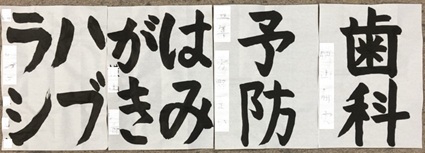 歯科
予防
はみ
がき
ハブ
ラシ